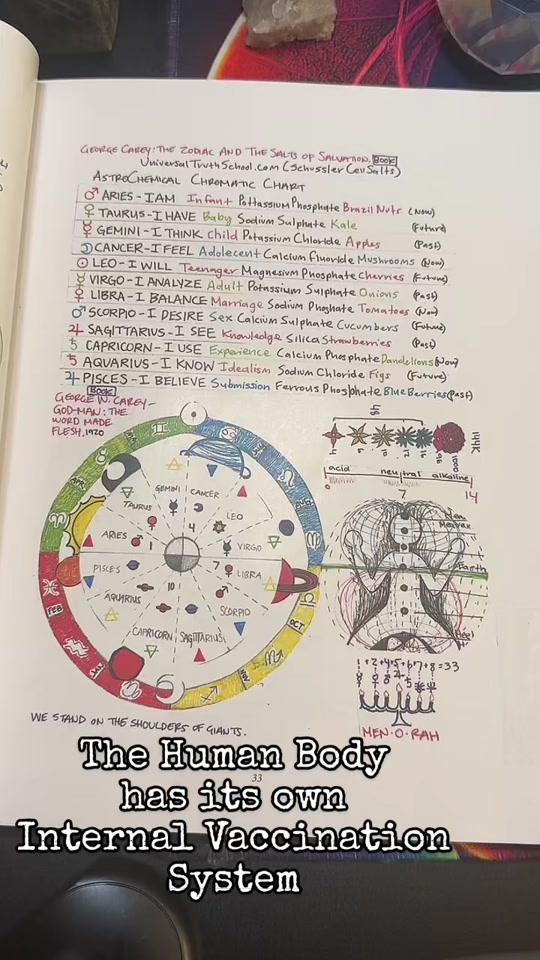 GEORGE CAREY: THE ZODIAC AND THE SALTS OF SALVATION. BOOK
UniversalTruthSchool.com (Schussler Cell Salts)
ASTROCHEMICAL CHROMATIC CHART
♂ ARIES - I AM Infant Pottassium Phosphate Brazil Nuts (Now)
♀ TAURUS - I HAVE Baby Sodium Sulphate Kale (Future)
☿ GEMINI - I THINK Child Potassium Chloride Apples (Past)
☽ CANCER - I FEEL Adolecent Calcium Fluoride Mushrooms (Now)
☉ LEO - I WILL Teenager Magnesium Phosphate Cherries (Future)
☿ VIRGO - I ANALYZE Adult Potassium Sulphate Onions (Past)
♀ LIBRA - I BALANCE Marriage Sodium Phosphate Tomatoes (Now)
♂ SCORPIO - I DESIRE Sex Calcium Sulphate Cucumbers (Future)
♃ SAGITTARIUS - I SEE Knowledge Silica Strawberries (Past)
♄ CAPRICORN - I USE Experience Calcium Phosphate Dandelions (Now)
♄ AQUARIUS - I KNOW Idealism Sodium Chloride Figs (Future)
♃ PISCES - I BELIEVE Submission Ferrous Phosphate BlueBerries (Past)
BOOK
GEORGE W. CAREY -
GOD-MAN: THE
WORD MADE
FLESH, 1920
144K
1000
acid neutral alkaline
7 14
GEMINI CANCER
TAURUS LEO
4
ARIES 1 VIRGO
PISCES 7 LIBRA
10
AQUARIUS SCORPIO
CAPRICORN SAGITTARIUS
FEB
OCT
Earth
1+2+4+5+6+7+8=33
MEN·O·RAH
WE STAND ON THE SHOULDERS OF GIANTS.
33
The Human Body
has its own
Internal Vaccination
System